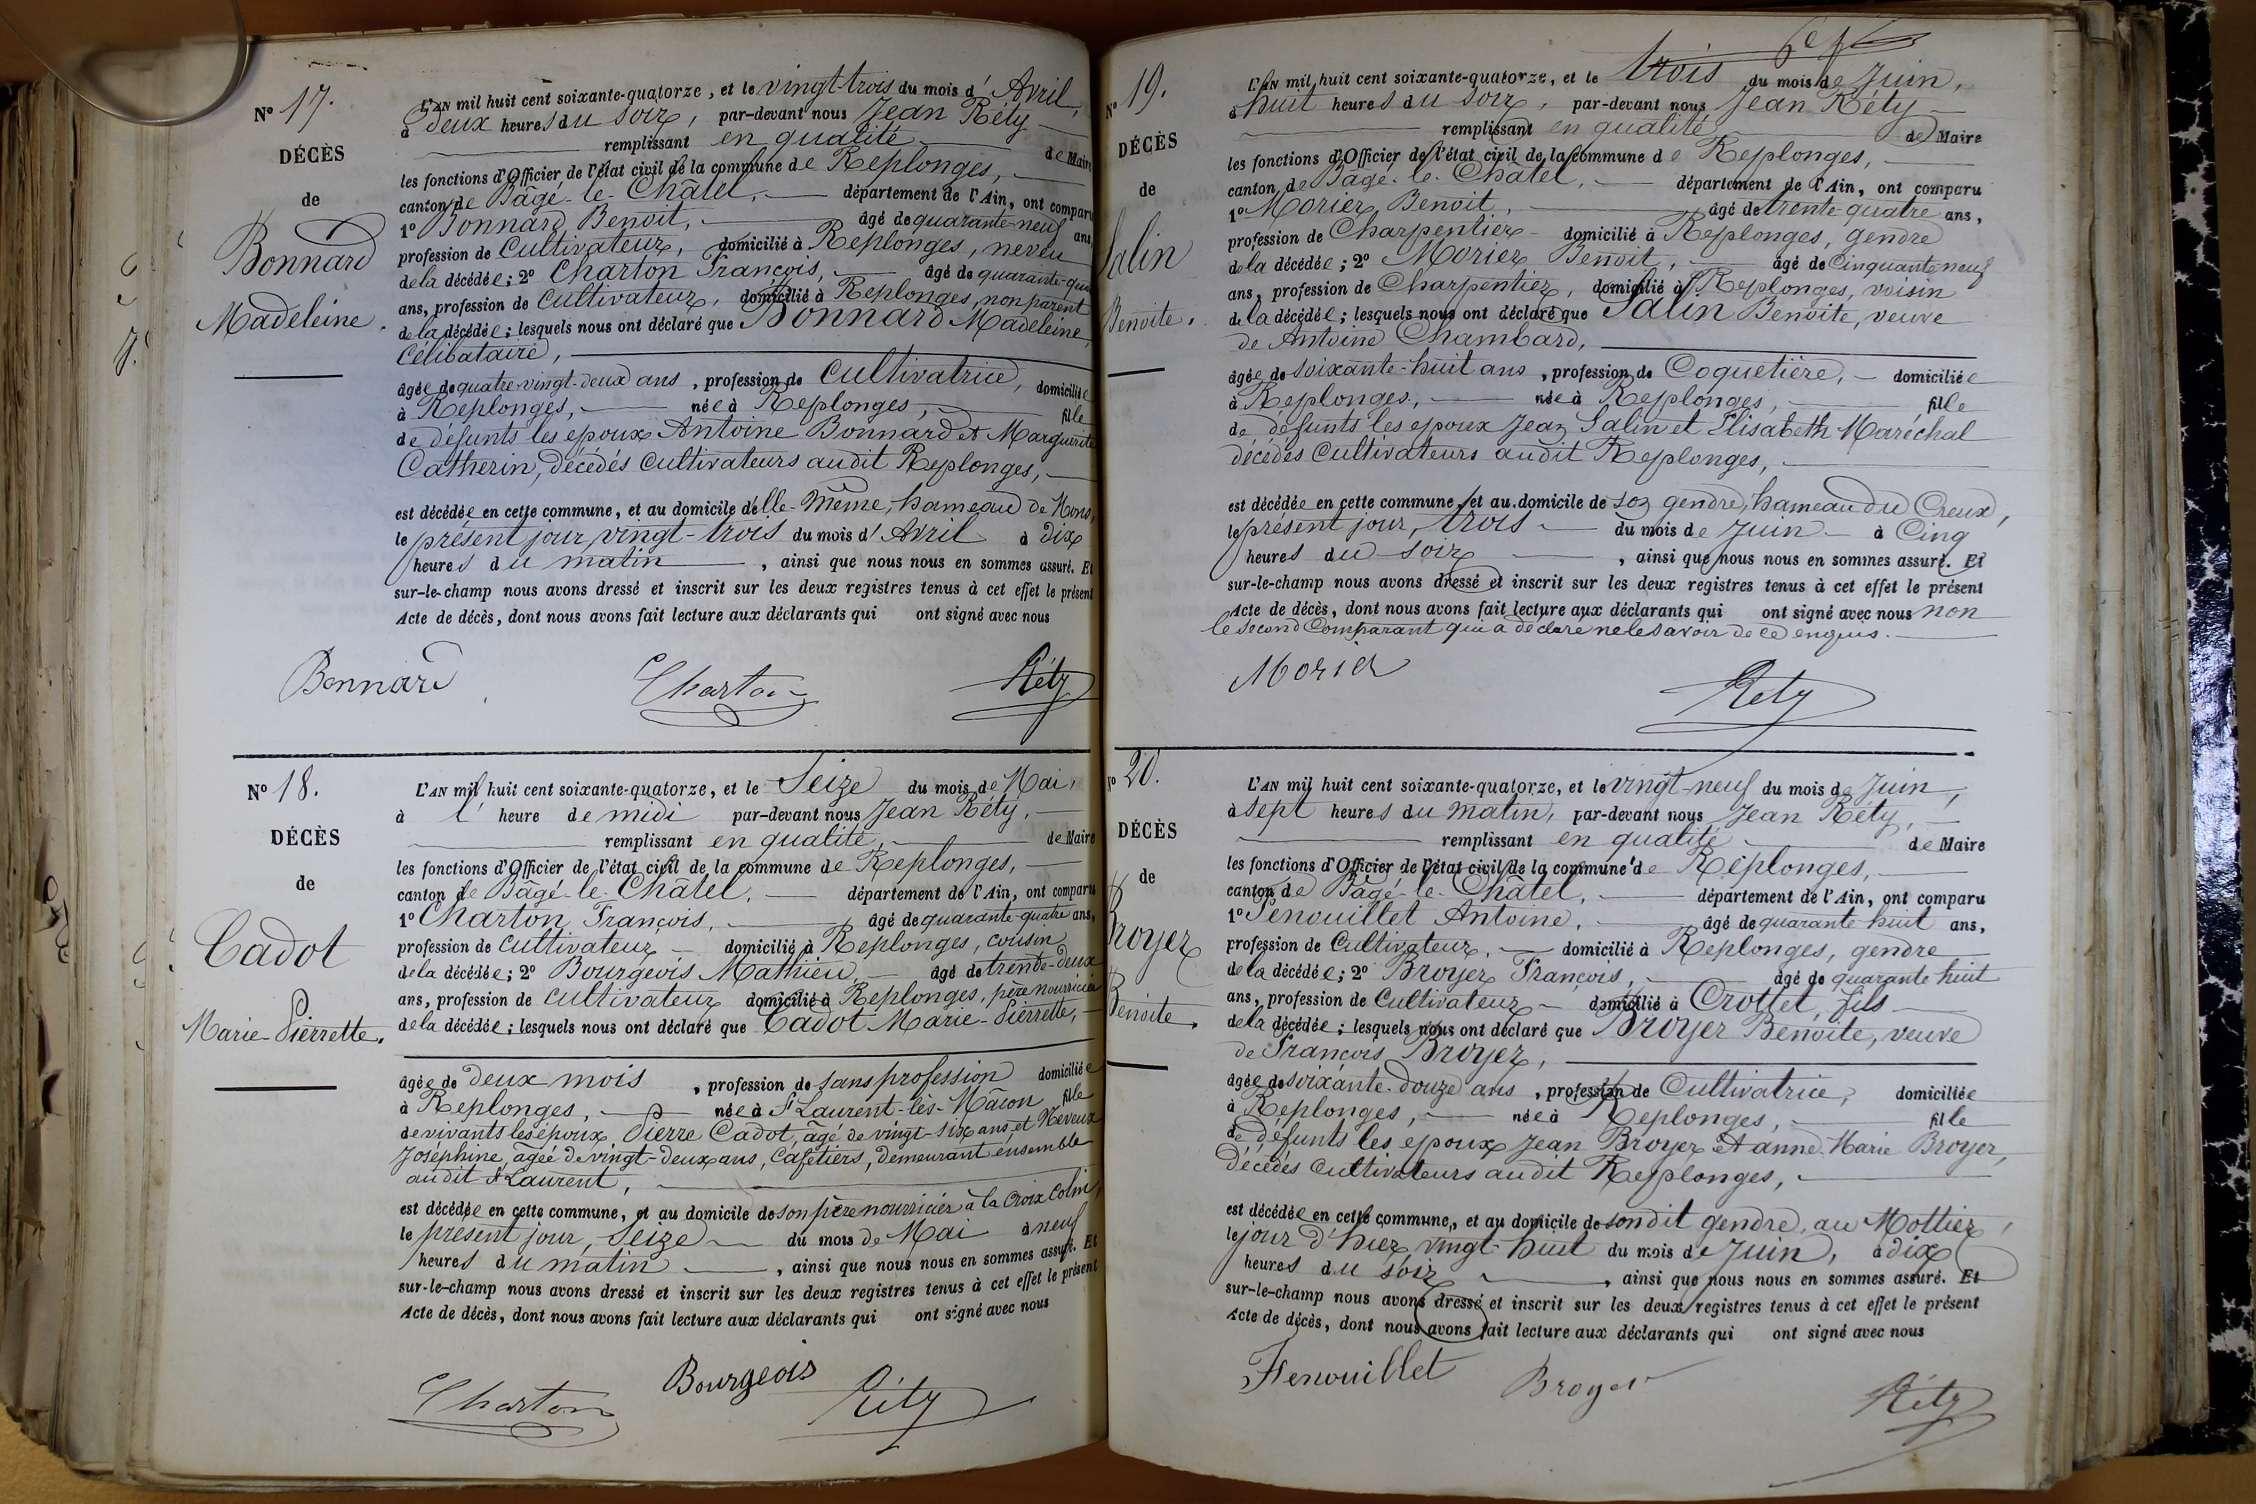 Nº 17.
DÉCÈS
de
Bonnard
Madeleine.
L'AN mil huit cent soixante-quatorze, et le vingt-trois du mois d'Avril,
à deux heures du soir, par-devant nous Jean Réty
remplissant en qualité de Maire
les fonctions d'Officier de l'état civil de la commune de Replonges,
canton de Bâgé-le-Châtel, département de l'Ain, ont comparu
1º Bonnard Benoit, âgé de quarante-neuf ans,
profession de Cultivateur, domicilié à Replonges, neveu
de la décédée; 2º Charton François, âgé de quarante-quatre
ans, profession de Cultivateur, domicilié à Replonges, non parent
de la décédée; lesquels nous ont déclaré que Bonnard Madeleine,
Célibataire,
âgée de quatre-vingt-deux ans, profession de Cultivatrice, domiciliée
à Replonges, née à Replonges, fille
de défunts les époux Antoine Bonnard et Marguerite
Catherin, décédés cultivateurs audit Replonges,
est décédée en cette commune, et au domicile d'elle-même, hameau de Mons,
le présent jour, vingt-trois du mois d'Avril à dix
heures du matin, ainsi que nous nous en sommes assuré. Et
sur-le-champ nous avons dressé et inscrit sur les deux registres tenus à cet effet le présent
Acte de décès, dont nous avons fait lecture aux déclarants qui ont signé avec nous
Bonnard Charton Réty
Nº 18.
DÉCÈS
de
Cadot
Marie-Pierrette.
L'AN mil huit cent soixante-quatorze, et le Seize du mois de Mai,
à l'heure de midi par-devant nous Jean Réty,
remplissant en qualité, de Maire
les fonctions d'Officier de l'état civil de la commune de Replonges,
canton de Bâgé-le-Châtel, département de l'Ain, ont comparu
1º Charton François, âgé de quarante-quatre ans,
profession de cultivateur domicilié à Replonges, cousin
de la décédée; 2º Bourgeois Mathieu, âgé de trente-deux
ans, profession de cultivateur domicilié à Replonges, père nourricier
de la décédée; lesquels nous ont déclaré que Cadot Marie-Pierrette,
âgée de deux mois, profession de sans profession domiciliée
à Replonges, née à St Laurent-lès-Mâcon fille
de vivants les époux Pierre Cadot, âgé de vingt-six ans et Neveux
Joséphine, agée de vingt-deux ans, Cafetiers, demeurant ensemble
audit St Laurent,
est décédée en cette commune, et au domicile de son père nourricier à la Croix Colin,
le présent jour, Seize du mois de Mai à neuf
heures du matin, ainsi que nous nous en sommes assuré. Et
sur-le-champ nous avons dressé et inscrit sur les deux registres tenus à cet effet le présent
Acte de décès, dont nous avons fait lecture aux déclarants qui ont signé avec nous
Charton Bourgeois Réty
Nº 19.
DÉCÈS
de
Salin
Benoite.
L'AN mil huit cent soixante-quatorze, et le trois du mois de Juin,
à huit heures du soir, par-devant nous Jean Réty
remplissant en qualité de Maire
les fonctions d'Officier de l'état civil de la commune de Replonges,
canton de Bâgé-le-Châtel, département de l'Ain, ont comparu
1º Morier Benoit, âgé de trente-quatre ans,
profession de Charpentier domicilié à Replonges, gendre
de la décédée; 2º Morier Benoit, âgé de Cinquante neuf
ans, profession de Charpentier, domicilié à Replonges, voisin
de la décédée; lesquels nous ont déclaré que Salin Benoite, veuve
de Antoine Chambard,
âgée de soixante-huit ans, profession de Coquetière, domiciliée
à Replonges, née à Replonges, fille
de défunts les époux Jean Salin et Elisabeth Maréchal
décédés cultivateurs audit Replonges,
est décédée en cette commune, et au domicile de son gendre, hameau du Creux,
le présent jour, trois du mois de Juin à Cinq
heures du soir, ainsi que nous nous en sommes assuré. Et
sur-le-champ nous avons dressé et inscrit sur les deux registres tenus à cet effet le présent
Acte de décès, dont nous avons fait lecture aux déclarants qui ont signé avec nous non
le second Comparant qui a déclaré ne le savoir de ce enquis.
Morier Réty
Nº 20.
DÉCÈS
de
Broyer
Benoite.
L'AN mil huit cent soixante-quatorze, et le vingt-neuf du mois de Juin,
à sept heures du matin, par-devant nous Jean Réty,
remplissant en qualité de Maire
les fonctions d'Officier de l'état civil de la commune de Replonges,
canton de Bâgé-le-Châtel, département de l'Ain, ont comparu
1º Fenouillet Antoine, âgé de quarante huit ans,
profession de Cultivateur, domicilié à Replonges, gendre
de la décédée; 2º Broyer François, âgé de quarante huit
ans, profession de Cultivateur domicilié à Crottet, fils
de la décédée; lesquels nous ont déclaré que Broyer Benoite, veuve
de François Broyer,
âgée de soixante-douze ans, profession de Cultivatrice, domiciliée
à Replonges, née à Replonges, fille
de défunts les époux Jean Broyer et anne-Marie Broyer,
décédés cultivateurs audit Replonges,
est décédée en cette commune, et au domicile de sondit gendre, au Mottier,
le jour d'hier, vingt-huit du mois de Juin, à dix
heures du soir, ainsi que nous nous en sommes assuré. Et
sur-le-champ nous avons dressé et inscrit sur les deux registres tenus à cet effet le présent
Acte de décès, dont nous avons fait lecture aux déclarants qui ont signé avec nous
Fenouillet Broyer Réty